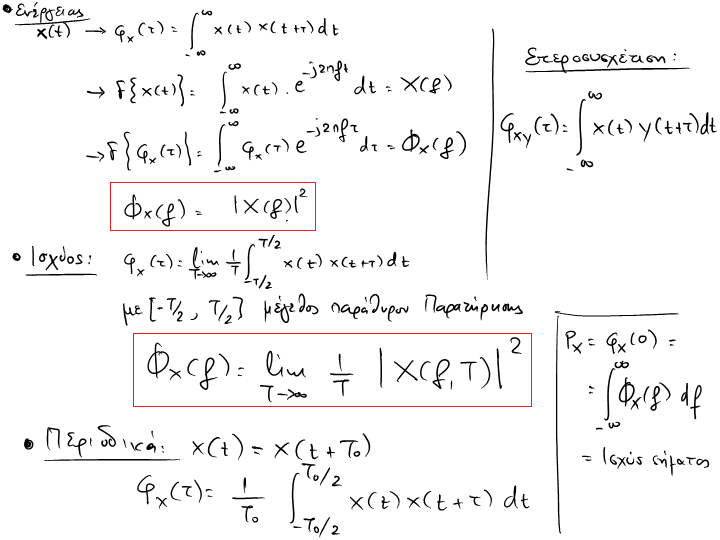 • Ενέργειας
x(t) → φₓ(τ) = ∫_{-∞}^{∞} x(t) x(t+τ) dt
→ F{x(t)} = ∫_{-∞}^{∞} x(t) · e^{-j2πft} dt = X(f)
→ F{φₓ(τ)} = ∫_{-∞}^{∞} φₓ(τ) e^{-j2πfτ} dτ = Φₓ(f)
Φₓ(f) = |X(f)|²
Ετεροσυσχέτιση:
φ_{xy}(τ) = ∫_{-∞}^{∞} x(t) y(t+τ) dt
• Ισχύος: φₓ(τ) = lim_{T→∞} 1/T ∫_{-T/2}^{T/2} x(t) x(t+τ) dt
με [-T/2, T/2} μέγεθος παράθυρου Παρατήρησης
Φₓ(f) = lim_{T→∞} 1/T |X(f,T)|²
Pₓ = φₓ(0) =
= ∫_{-∞}^{∞} Φₓ(f) df
= Ισχύς σήματος
• Περιοδικά: x(t) = x(t + T₀)
φₓ(τ) = 1/T₀ ∫_{-T₀/2}^{T₀/2} x(t) x(t+τ) dt